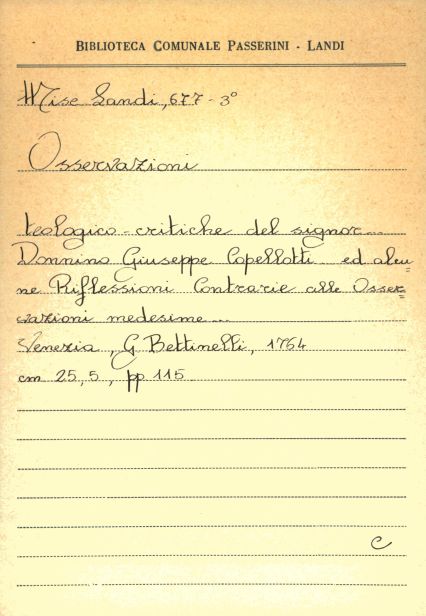 BIBLIOTECA COMUNALE PASSERINI - LANDI
Misc Landi, 677 - 3°
Osservazioni
teologico-critiche del signor...
Donnino Giuseppe Copellotti ed alcu=
ne Riflessioni Contrarie alle Osser=
vazioni medesime...
Venezia, G. Bettinelli, 1764
cm 25,5, pp 115
C